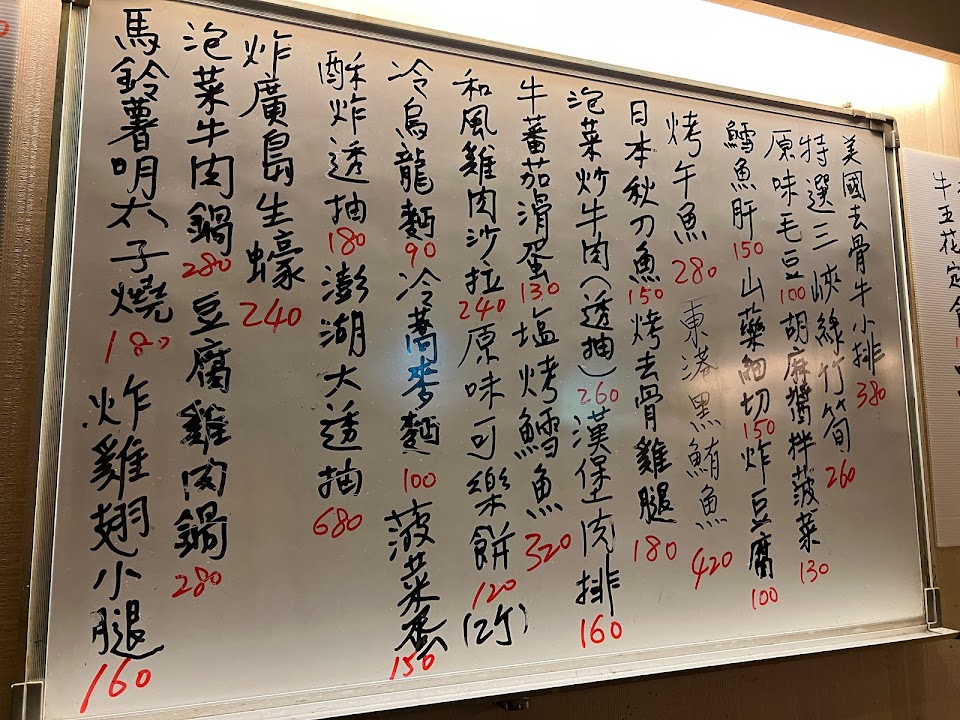 美國去骨牛小排380
特選三峽綠竹筍260
原味毛豆100胡麻醬拌菠菜130
鱈魚肝150山藥細切150炸豆腐100
烤午魚280東港黑鮪魚420
日本秋刀魚150烤去骨雞腿180
泡菜炒牛肉(透抽)260漢堡肉排160
牛蕃茄滑蛋130塩烤鱈魚320
和風雞肉沙拉240原味可樂餅120(2个)
冷烏龍麵90冷蕎麥麵100菠菜蛋150
酥炸透抽180澎湖大透抽680
炸廣島生蠔240
泡菜牛肉鍋280豆腐雞肉鍋280
馬鈴薯明太子燒180炸雞翅小腿160
牛五花定食